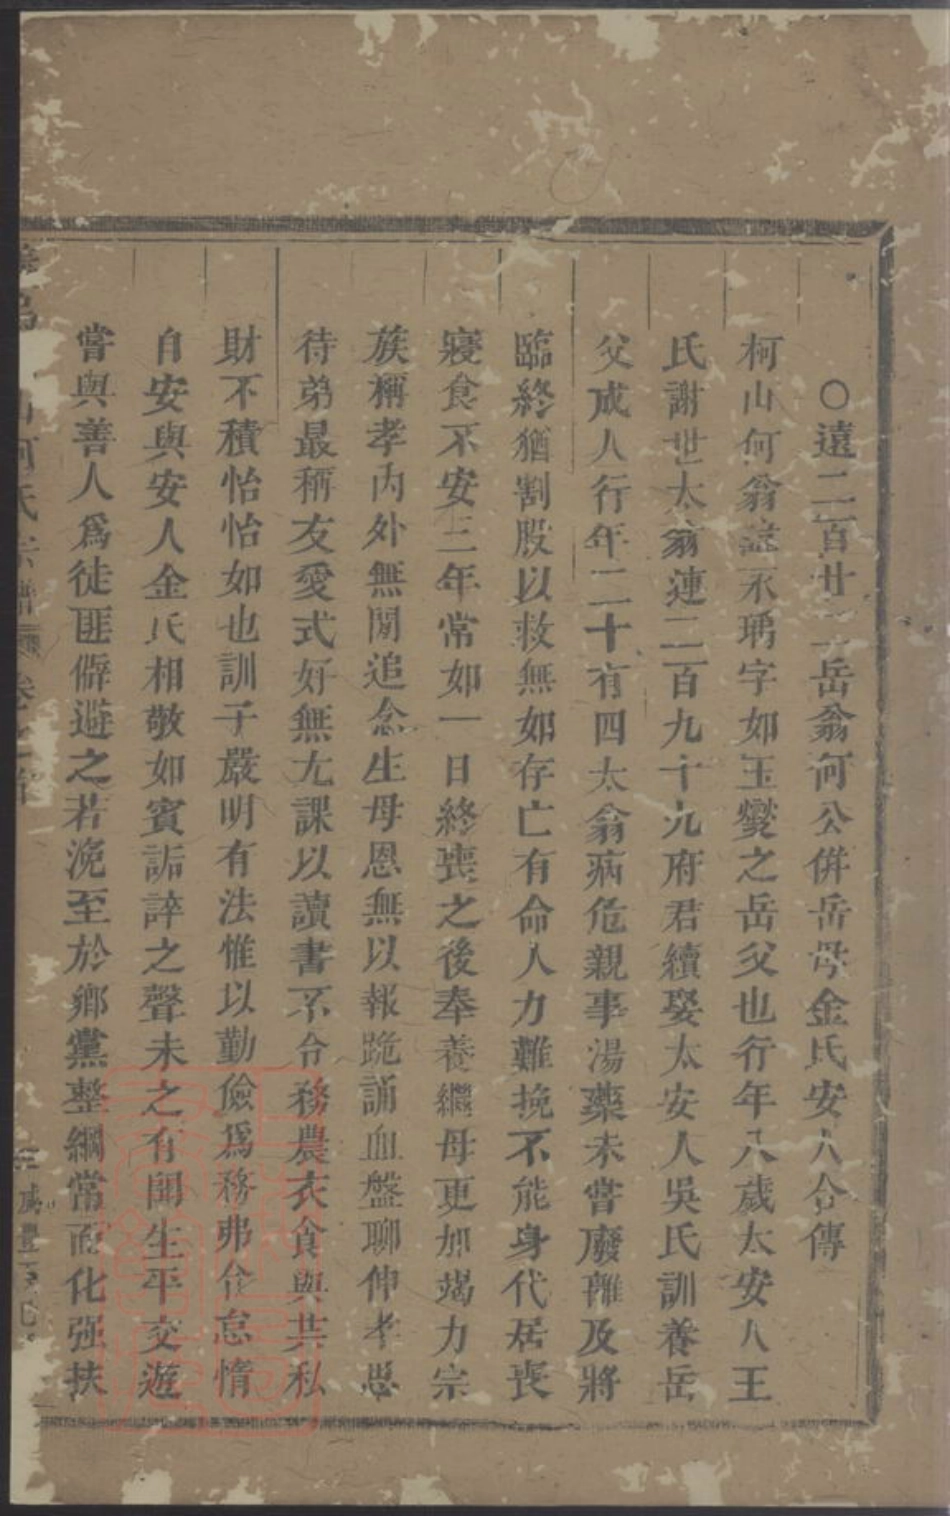 ○遠二百廿二岳翁何公併岳母金氏安人合傳
柯山何翁諡承瑀字如玉燮之岳父也行年八歲太安人王
氏謝世太翁蓮二百九十九府君續娶太安人吳氏訓養岳
父成人行年二十有四太翁病危親事湯藥未嘗廢離及將
臨終猶割股以救無如存亡有命人力難挽不能身代居喪
寢食不安三年常如一日終喪之後奉養繼母更加竭力宗
族稱孝內外無間追念生母恩無以報跪誦血盤聊伸孝思
待弟最稱友愛式好無尤課以讀書不合務農衣食與共私
財不積怡怡如也訓子嚴明有法惟以勤儉爲務弗令怠惰
自安與安人金氏相敬如賓詬誶之聲未之有聞生平交遊
嘗與善人爲徒匪僻避之若浼至於鄉黨整綱常而化强扶
何氏宗譜 卷之
咸豐